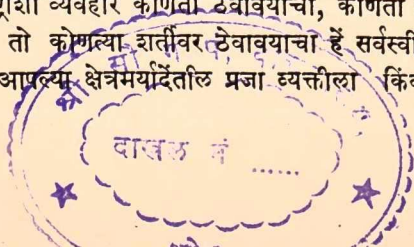 व्यवहार कोणता ठेवावयाचा, कोणता
तो कोणत्या शर्तीवर ठेवावयाचा हें
आपल्या क्षेत्रमर्यादेंतील प्रजा व्यक्तीला
दाखल नं ......